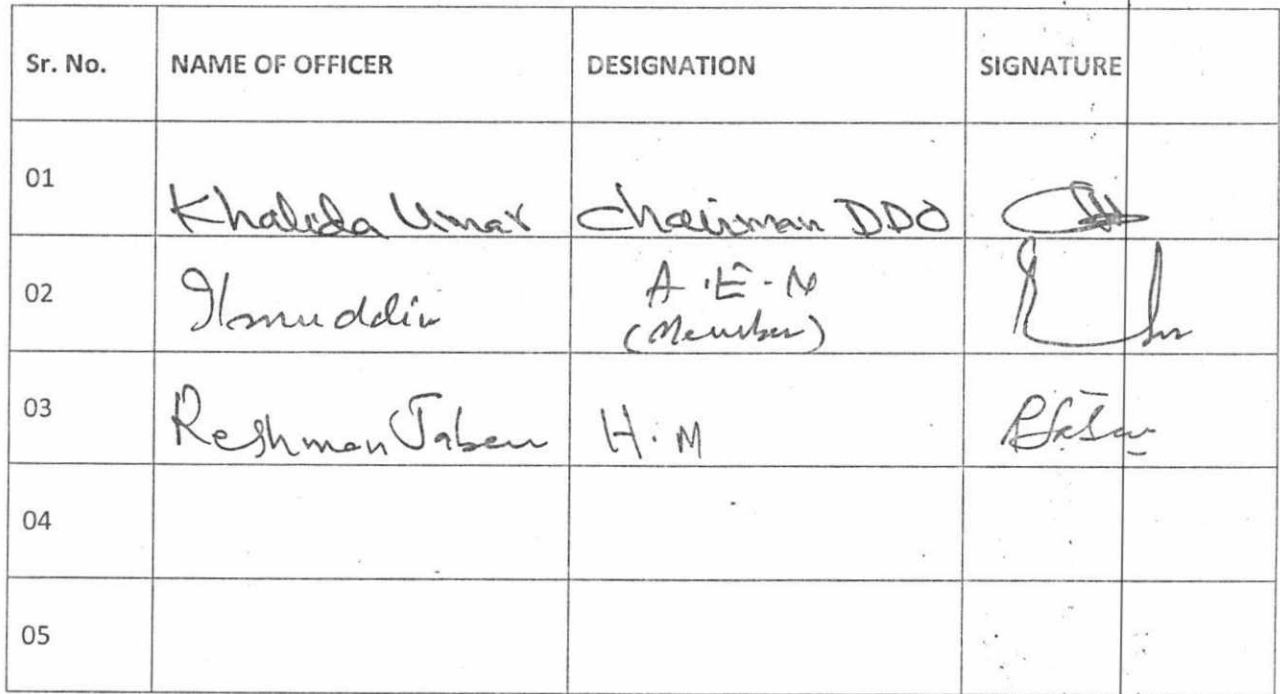 Sr. No. NAME OF OFFICER DESIGNATION SIGNATURE
01 Khalida Umar Chairman DDO
02 Ilmuddin A.E.N
(Member)
03 Reshman Jaben H.M
04
05